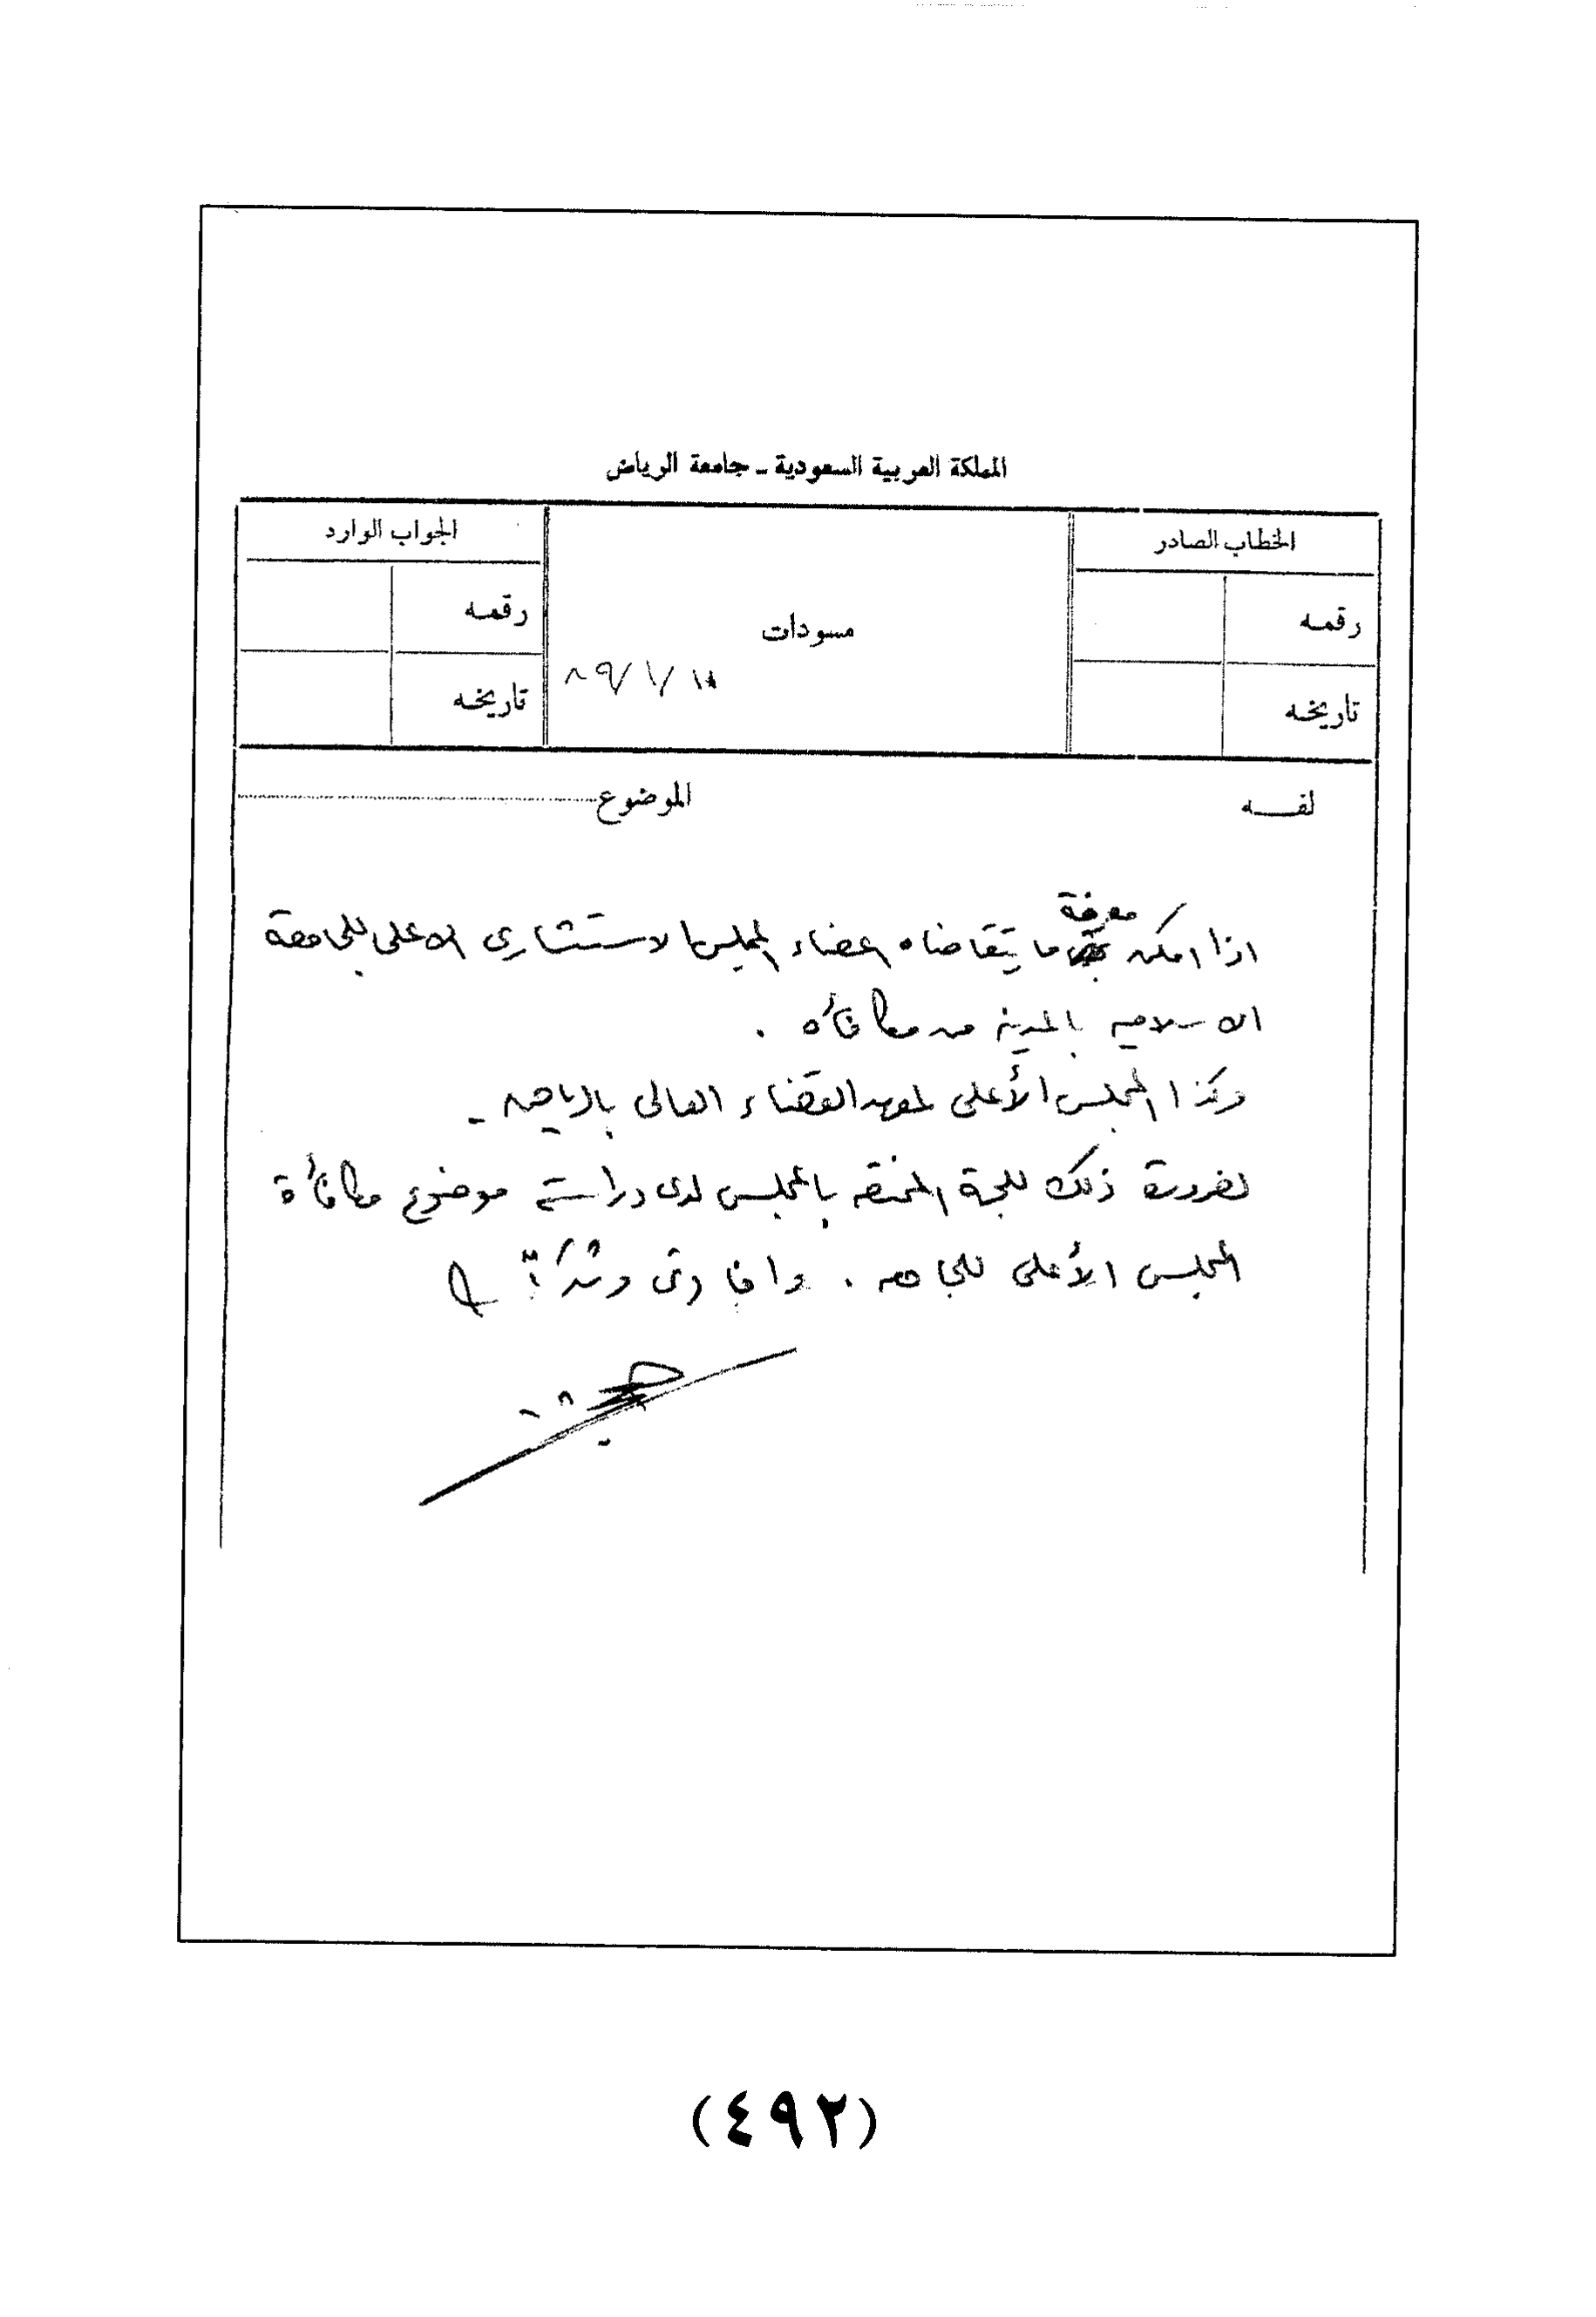 المملكة العربية السعودية - جامعة الرياض
الخطاب الصادر
رقمه
تاريخه
مسودات
الجواب الوارد
رقمه
تاريخه
لفـــه
الموضوع
اذا امكن معرفة ما يتقاضاه اعضاء المجلس الاستشاري الاعلى للجامعة
الاسلاميه بالمدينه من مكافأه .
وكذا المجلس الأعلى لمعهد القضاء العالى بالرياض -
لضرورة ذلك للجنة المنبثقه بالمجلس لدى دراسته موضوع مكافأة
المجلس الأعلى للجامعه . وافادتى وشكرًا
(٤٩٢)